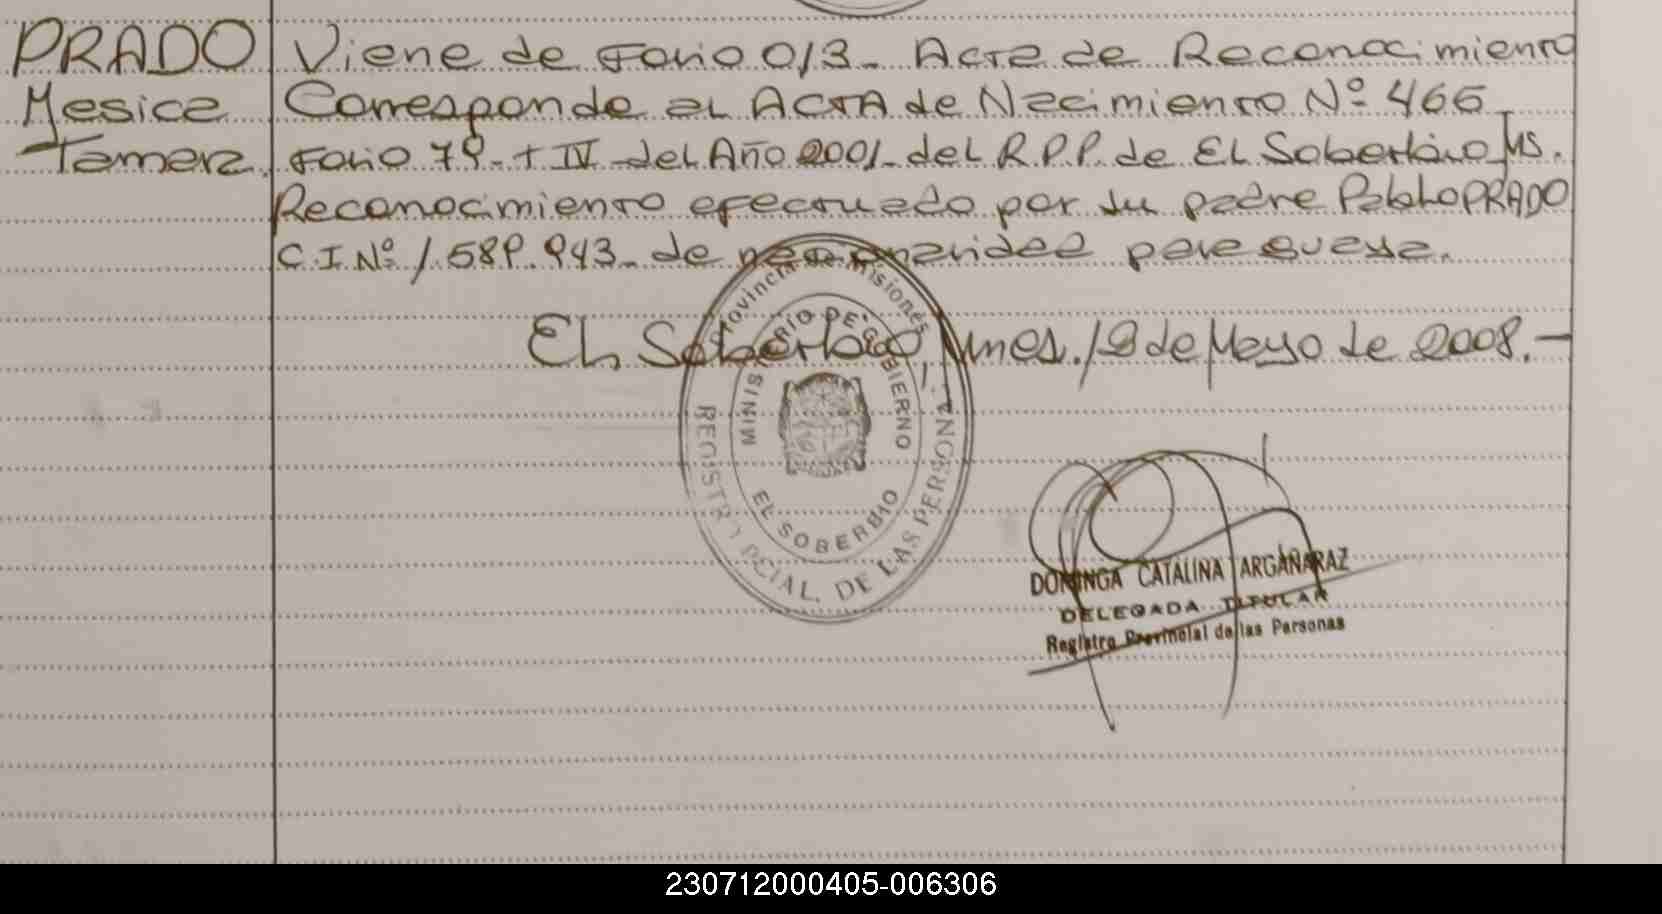 PRADO
Yesica
Tamara.
Viene de Folio 013_ Acta de Reconocimiento
Corresponde al ACTA de Nacimiento Nº 466
Folio 79_ T IV del Año 2001_ del R.P.P. de El Soberbio Ms.
Reconocimiento efectuado por su padre Pablo PRADO
C.I Nº 1.589.943_ de nacionalidad paraguaya.
El Soberbio, Mnes. 12 de Mayo de 2008.-
Provincia de Misiones
MINISTERIO DE GOBIERNO
EL SOBERBIO
REGISTRO PCIAL. DE LAS PERSONA
DOMINGA CATALINA ARGAÑARAZ
DELEGADA TITULAR
Registro Provincial de las Personas
230712000405-006306